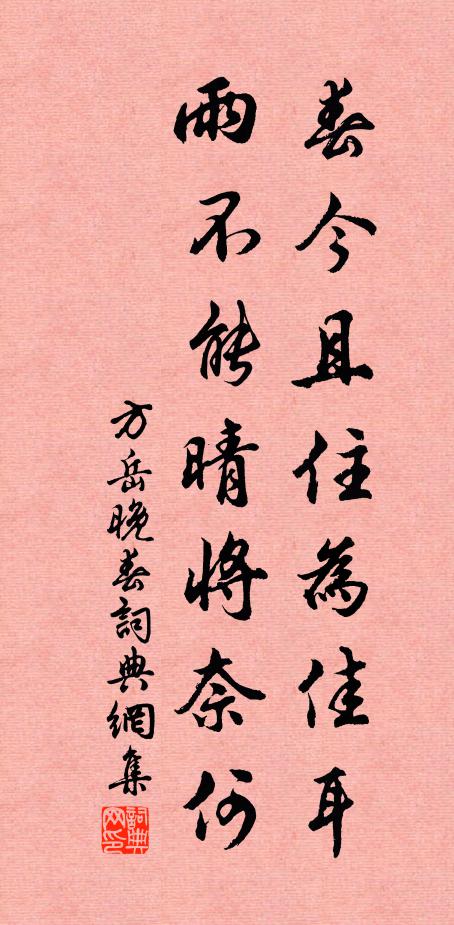 春今且住為佳耳
雨不能晴將奈何
方岳晚春詞典網集
詞典網印